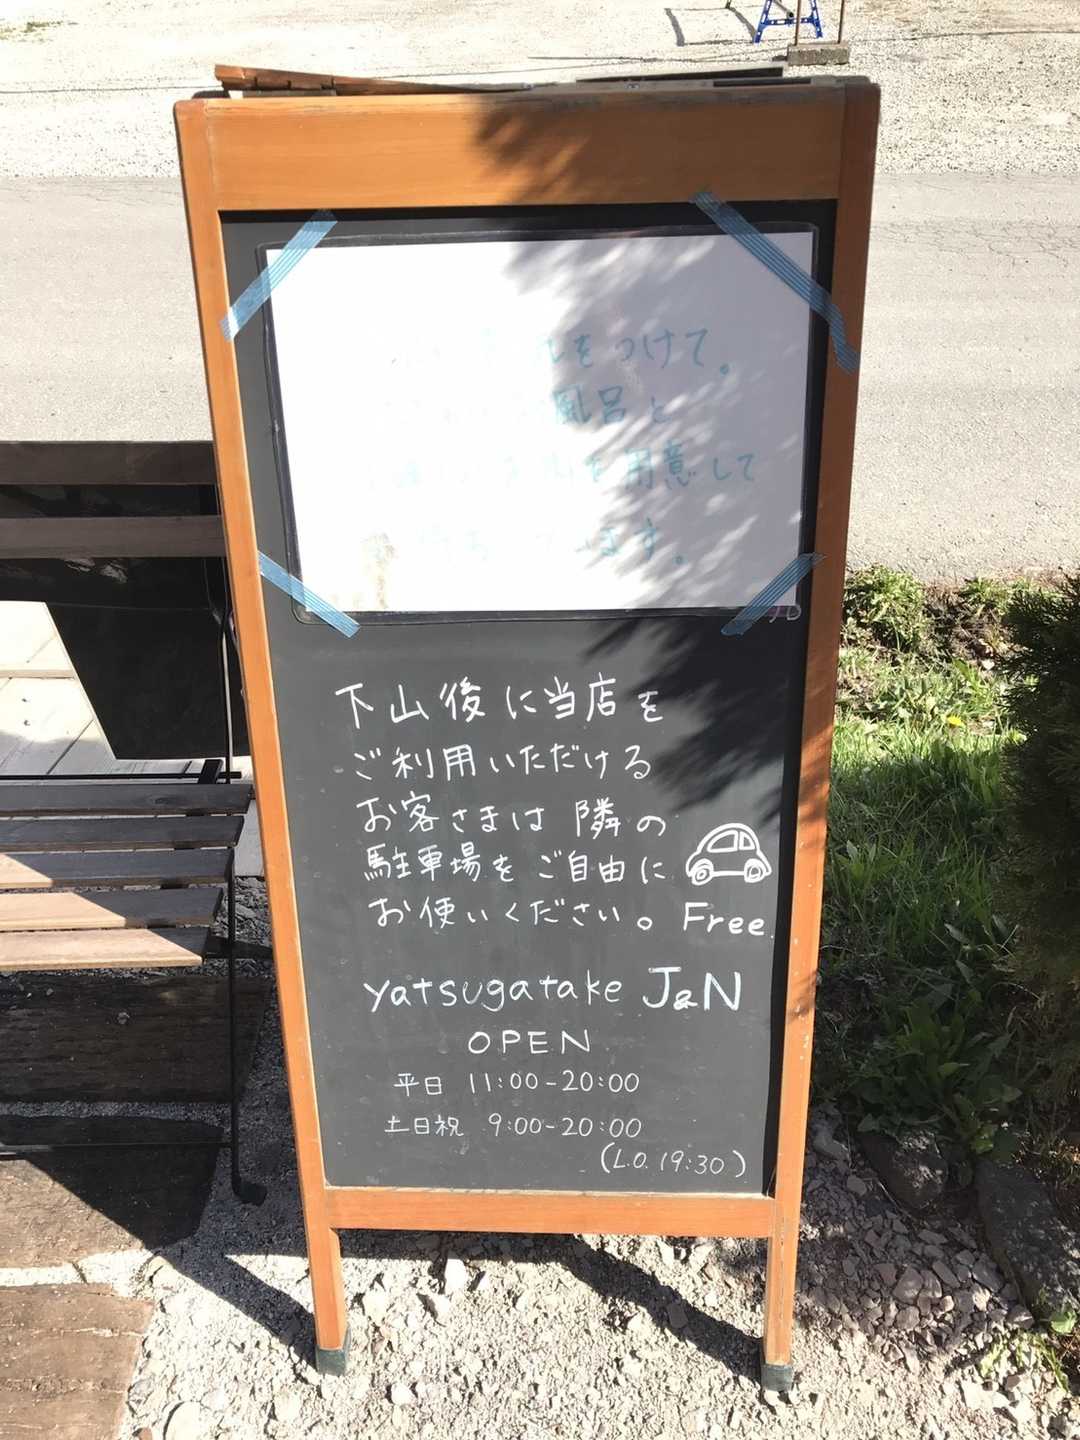 をつけて。
風呂と
を用意して
ます。
下山後に当店を
ご利用いただける
お客さまは隣の
駐車場をご自由に
お使いください。 Free
yatsugatake J&N
OPEN
平日 11:00-20:00
土日祝 9:00-20:00
(L.O. 19:30)